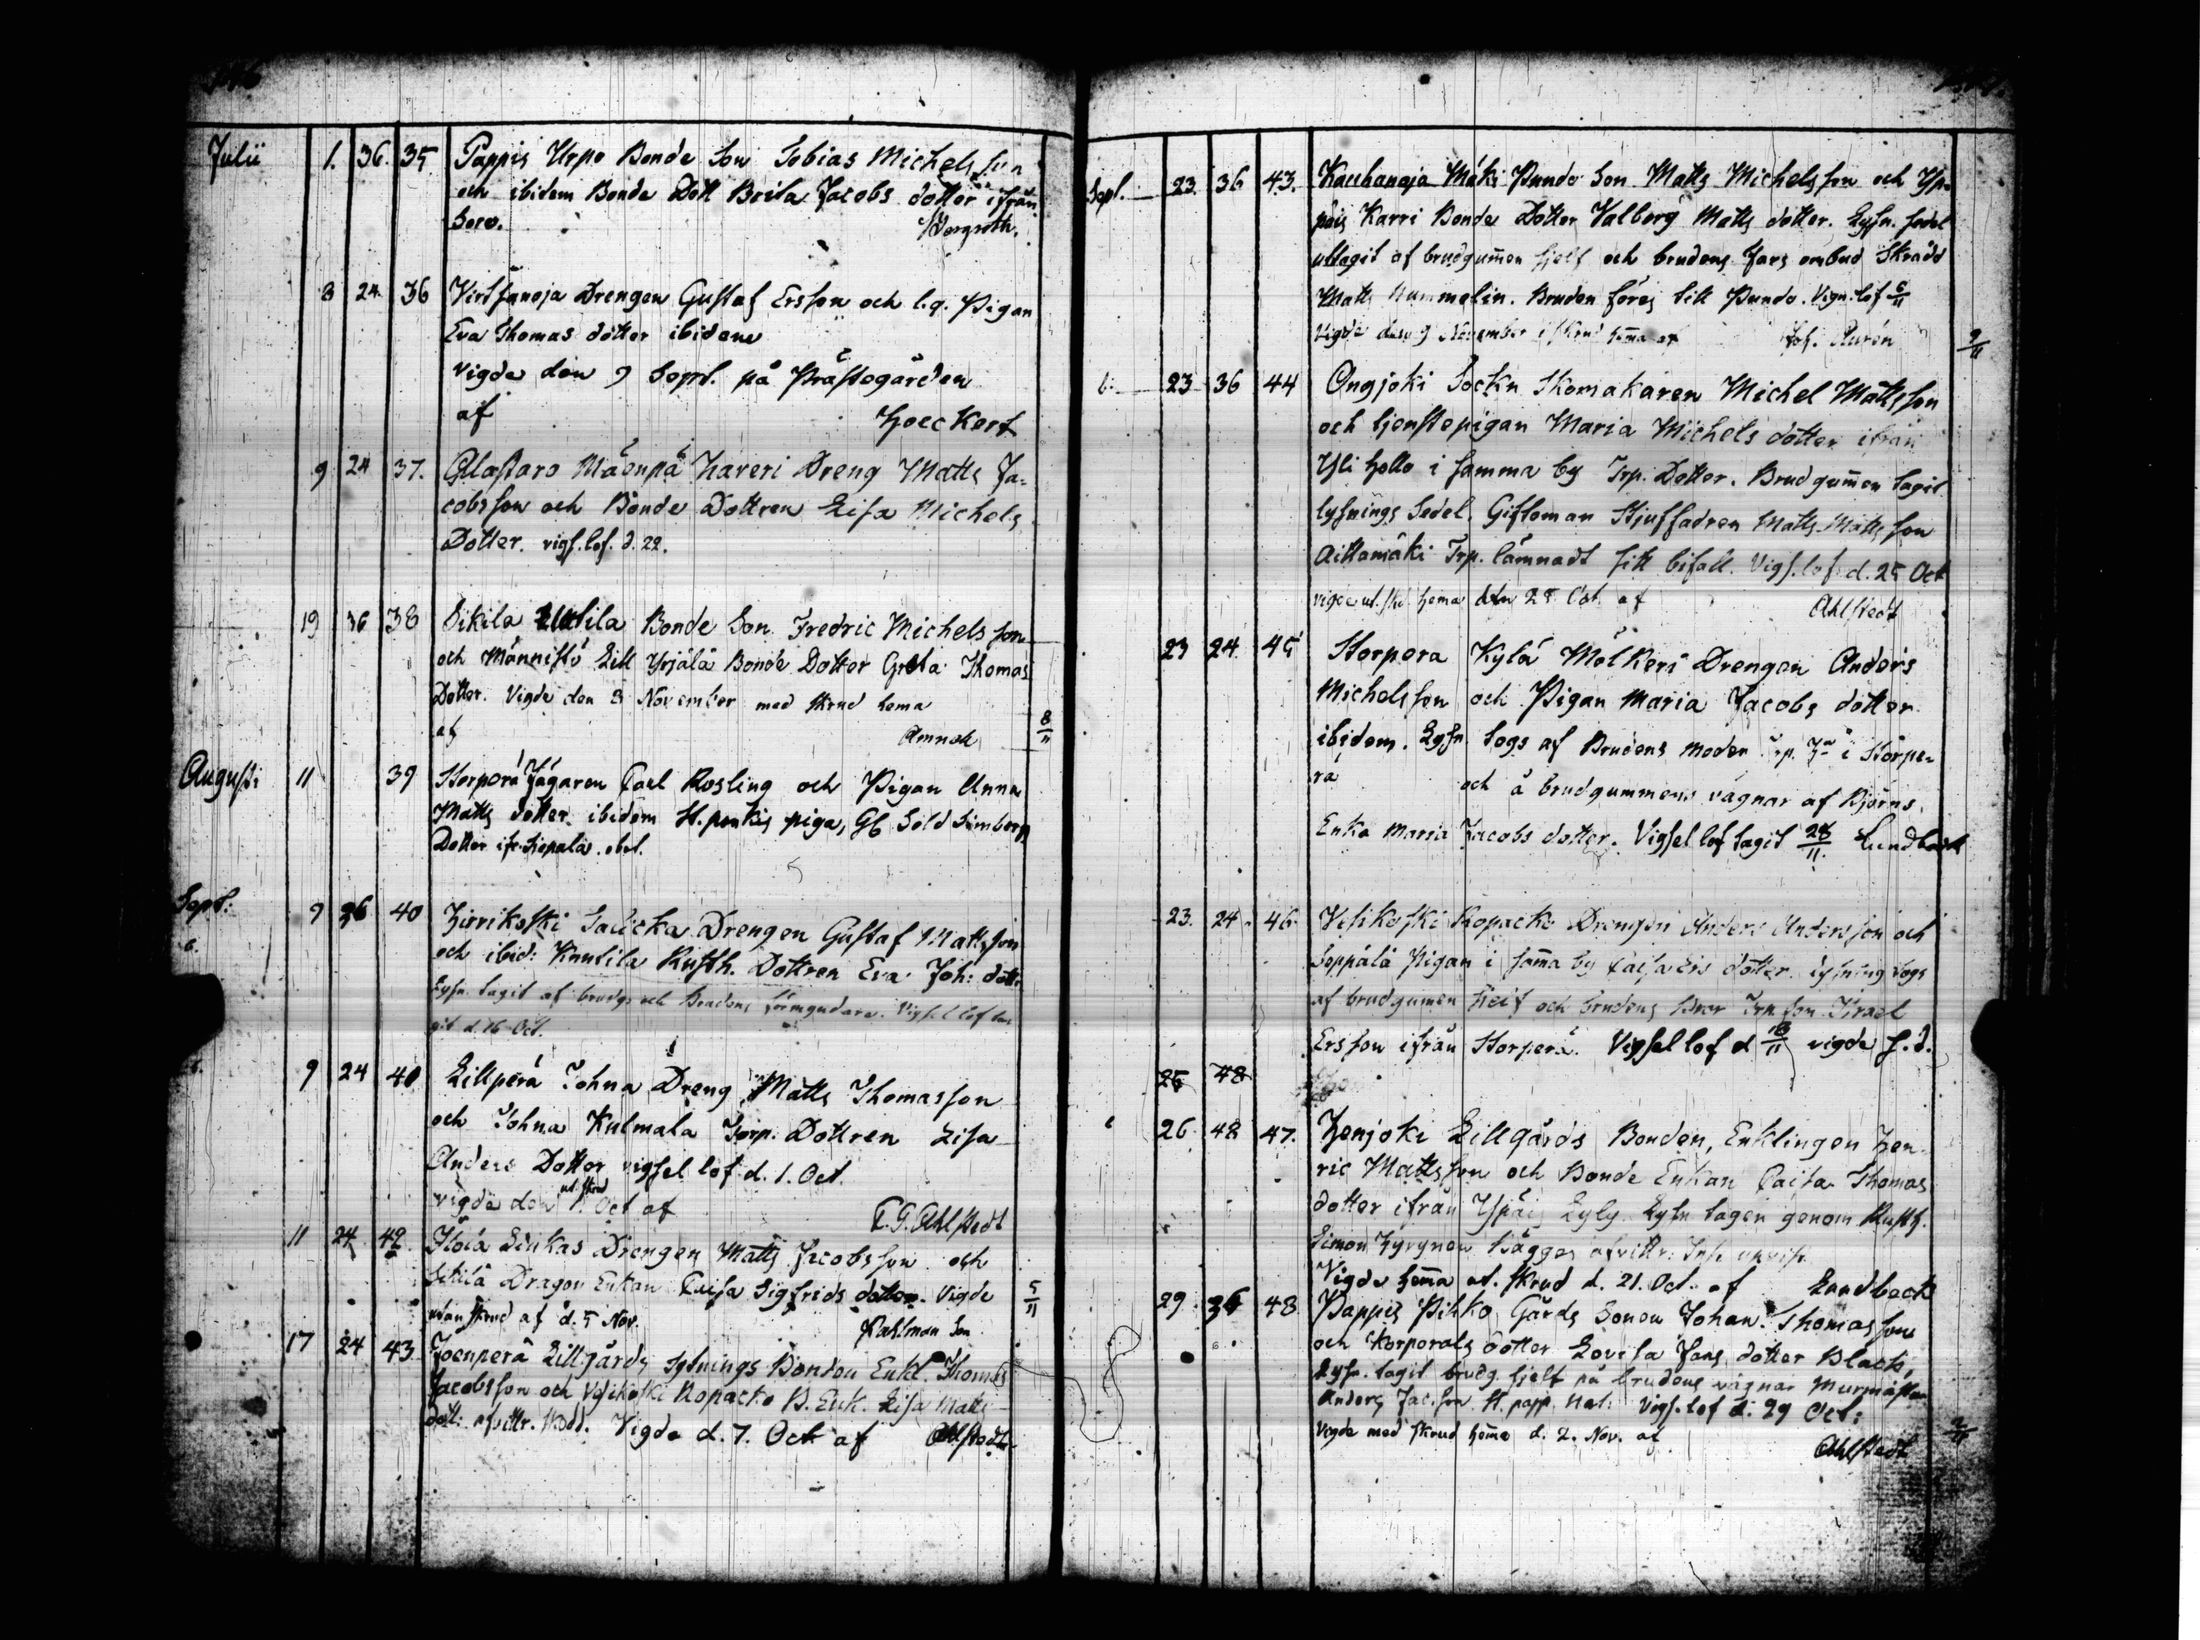 Julii 1. 36. 35 Pappis Urpo Bonde Son Tobias Michelsson
och ibidem Bonde Dott Brita Jacobs dotter ifrån
Soro. Bergroth.
8 24 36 Virtsanoja Drengen Gustaf Ersson och l.q. Pigan
Eva Thomas dotter ibidem
Vigde den 9 Sept. på Prästegården
af Hoeckert
9 24 37. Alastaro Mäenpä Haveri Dreng Matts Ja-
cobsson och Bonde Dottren Lisa Michels
Dotter. vigs. lof. d. 22.
19 36 38 Sikila Bonde Son Fredric Michelsson
och Männistö Lill Yrjälä Bonde Dotter Greta Thomas
Dotter. Vigde den 8 November med skrud hema
af 8/11
Augusti 11 39 Storperä Jägaren Carl Rosling och Pigan Anna
Matts dotter ibidem St. penkis piga, Gl Sold Simbergs
Dotter ifr. Siepala.
Sept: 9 36 40 Hirvikoski Salicka Drengen Gustaf Mattsson
och ibid: Knutila Rusth. Dottren Eva Joh: dotter
Lysn. tagit af brudg. och Brudens förmyndare. Vigsel lof ta-
git d. 16 Oct.
9 24 40 Lillperä Johna Dreng Matts Thomasson
och Johna Kulmala Torp. Dottren Lisa
Anders Dotter vigsel lof d. 1. Oct.
ut. skrud
vigde den 1. Oct af C. G. Ahlstedt
11 24 42. Drengen Matts Jacobsson och
Dragon Enkan Caisa Sigfrids dotter. Vigde
utan skrud af d. 5 Nov. 5/11
17 24 43. Joenperä Lillgårds Sytnings Bonden Enkl. Thomas
Jacobsson och Vesikoski Kopacko B. Enk. Lisa Matts
dott: Vigde d. 7. Oct af Ahlstedt
Sept. 23. 36 43. Kauhanoja Mäki Pundo Son Matts Michelsson och Yp-
päis Karri Bonde Dotter Valborg Matts dotter. Lysn. sedel
uttagit af brudgumen sjelf och brudens Fars ombud Skrädd
Matts Nummelin. Bruden föres till Pundo. Vign. lof 6/11
Vigde den 9 November i skrud hema af Joh. Aurén 9/11
23 36 44 Ongjoki Sockn Skomakaren Michel Mattsson
och tjenstepigan Maria Michels dotter ifrån
Yli Hollo i samma by Trp. Dotter. Brudgumen tagit
lysnings Sedel. Giftoman Stjuffadren Matts Mattsson
Aittamäki Trp. lämnadt sitt bifall. Vigs. lof d. 25 Oct
vigde ut. skr. hema den 28 Oct. af Ahlstedt
23 24 45 Storpera Kylä Mölkeri Drengen Anders
Michelsson och Pigan Maria Jacobs dotter
ibidem. Lysn. togs af Brudens moder i Storpe-
rä och å brudgummens vägnar af Björns
Enka Maria Jacobs dotter. Vigsel lof tagit 28/11. Lundbeck
23. 24. 46. Vesikoski Kopacko Drengen Anders Andersson och
Seppälä Pigan i sama by Caisa Ers dotter. lysning togs
af brudgumen sielf och brudens Bror Israel
Ersson ifrån Storperä. Vigsel lof d /11 vigde s. d.
25 48
26. 48 47. Henjoki Lillgårds Bonden, Enklingen Hen-
ric Mattsson och Bonde Enkan Caisa Thomas
dotter ifrån Ypäis Lyly. Lysn tagen genom Rusth.
Simon Hyrynen
Vigde hema ut. skrud d. 21. Oct. af Lundbeck
29. 36 48 Pappis Pihko Gårds Sonen Johan Thomasson
och Korporals dotter Lovisa Jans dotter Black,
Lysn. tagit brudg. sjelf på brudens vägnar Murmästar
Anders Jac.son Vigs. lof d. 29 Oct:
Vigde med skrud hema d. 2. Nov. af Ahlstedt 2/11